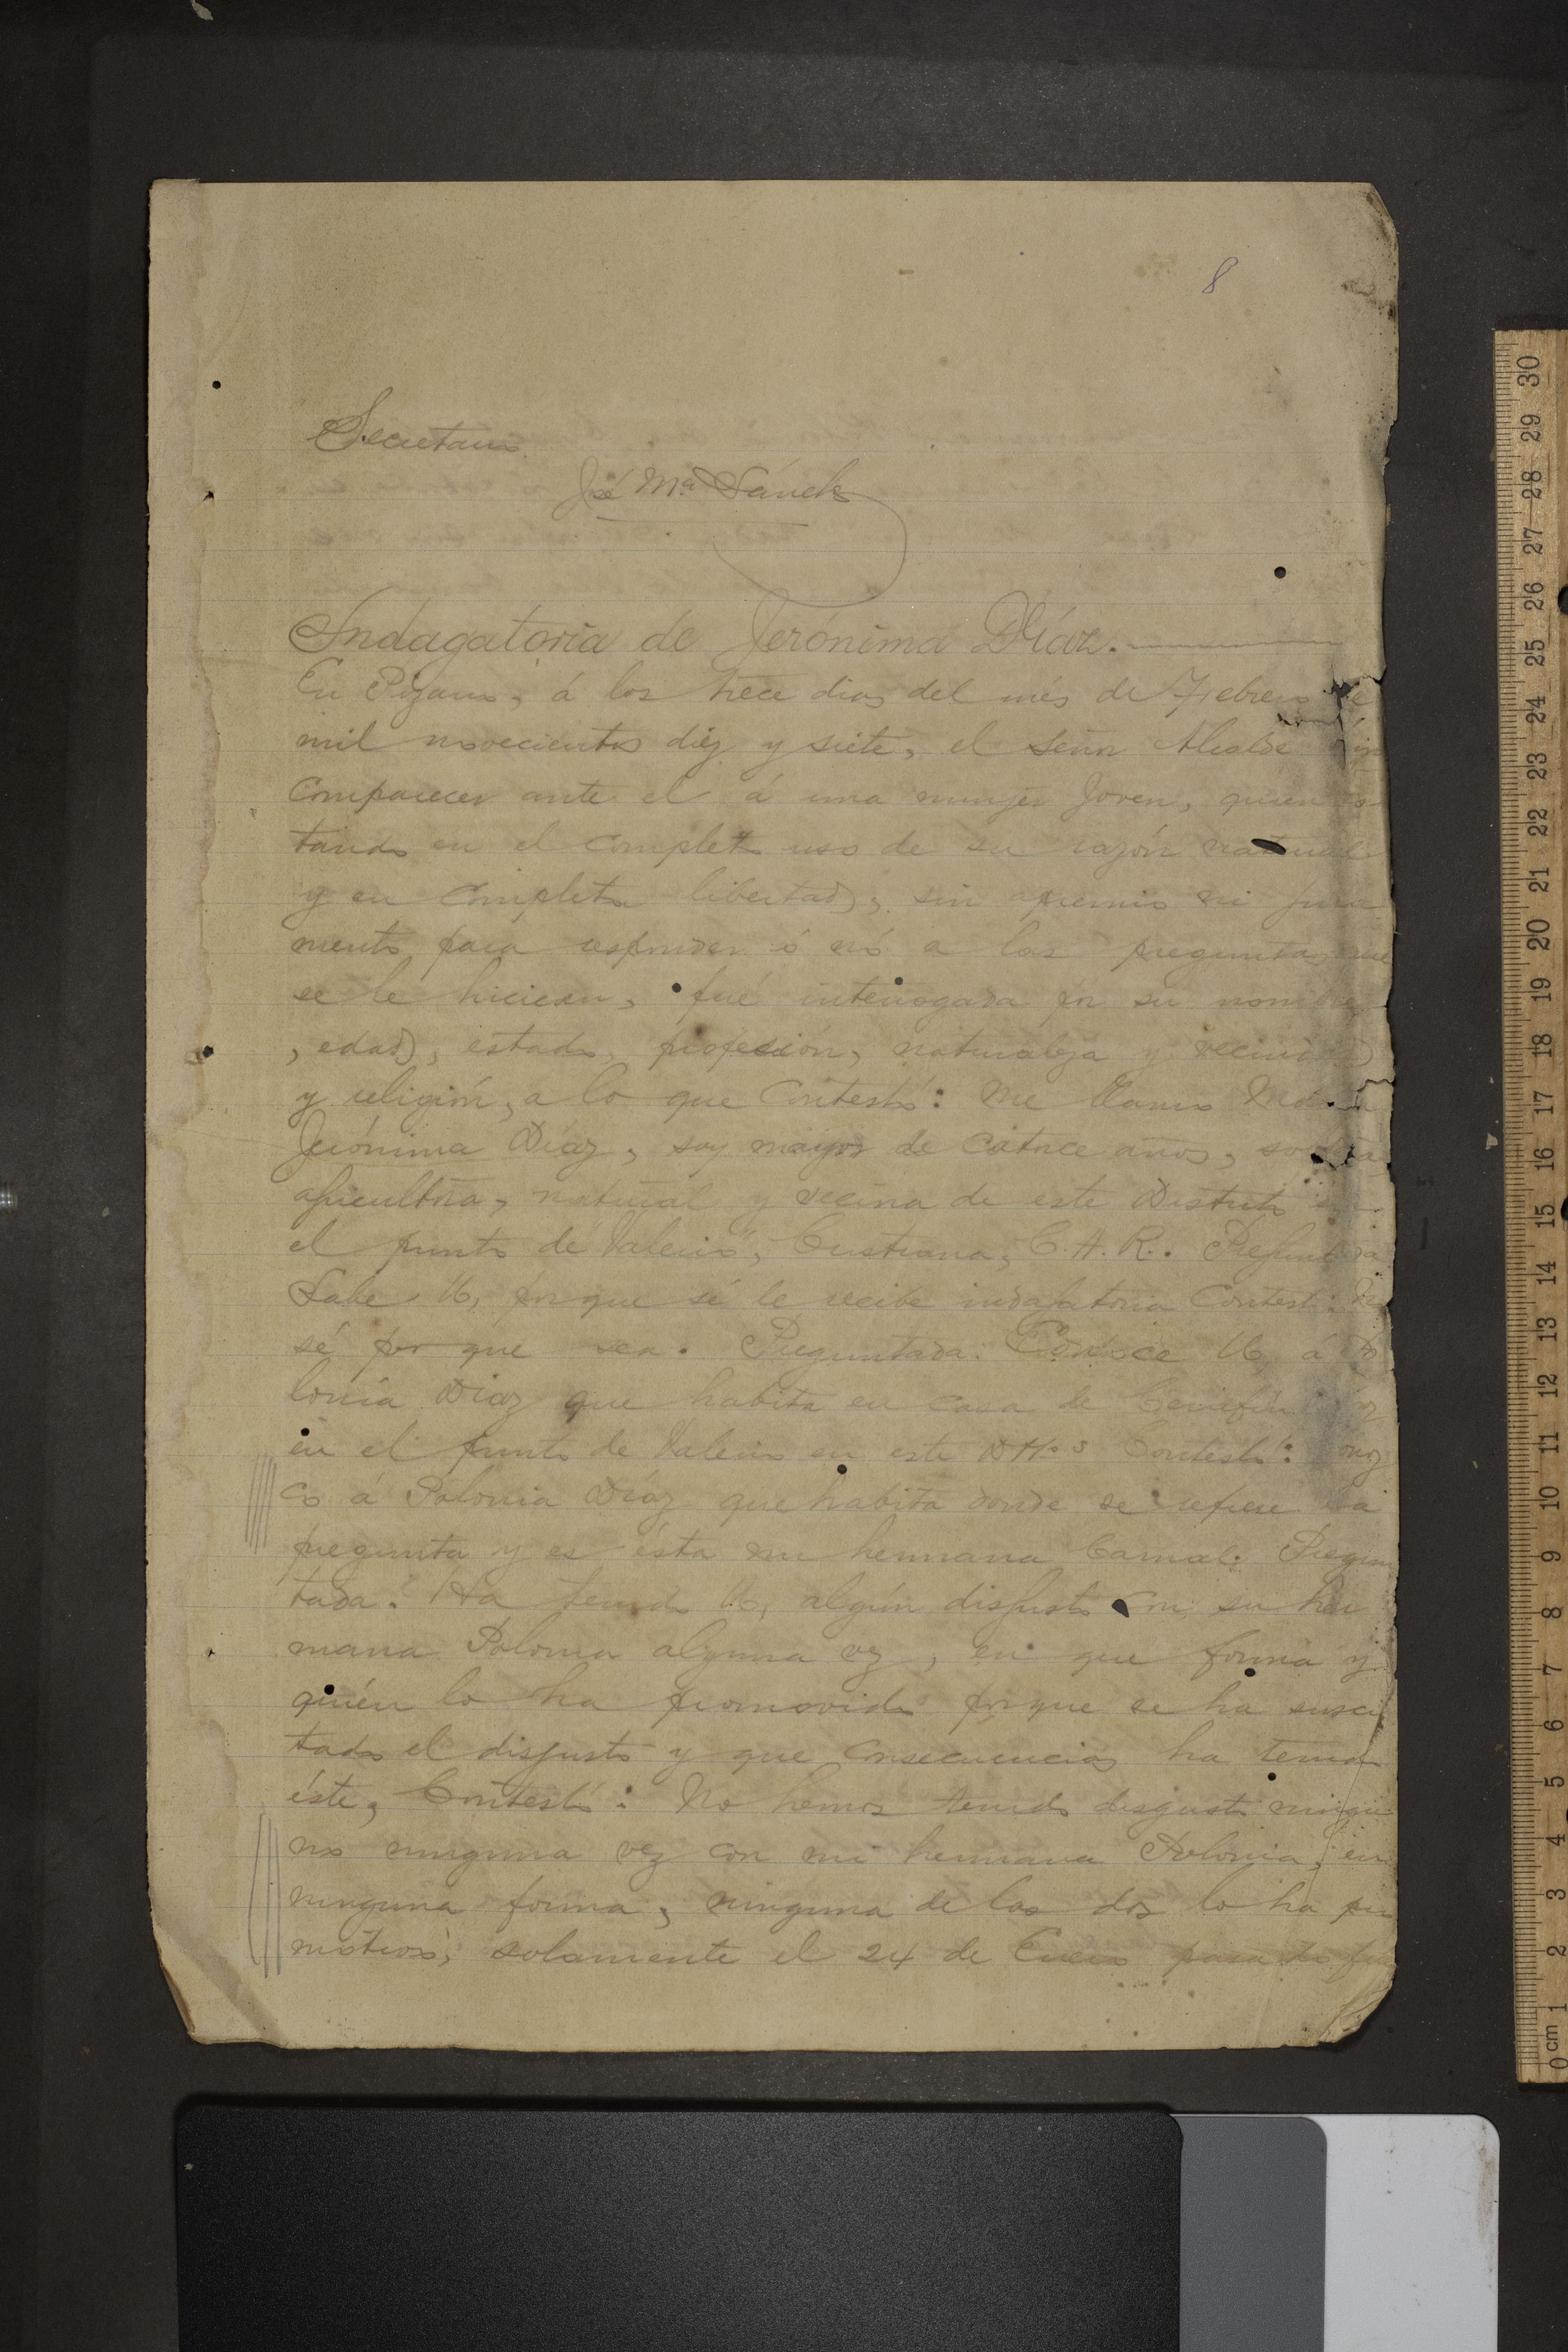 8
Secretario
José Ma. Sánchz
Indagatoria de Jerónima Díaz.
En Pizarro, á los trece dias del més de Febrero de
mil novecientos diez y siete, el señor Alcalde hizo
comparecer ante el á una mujer joven, quien es-
tando en el completo uso de su razón natural
y en completa libertad, sin apremio ni jura
mento para responder ó nó a las preguntas que
se le hicieran, fué interrogada por su nombre
, edad, estado, profesión, naturaleza y vecindad
y religión, a lo que contestó: Me llamo María
Jerónima Díaz, soy mayor de catorce años, soltera
agricultora, natural y vecina de este Distrito en
el punto de "Valerio", Cristiana, C. A. R. Preguntada
Sabe U, porque sé le recibe indagatoria Contestó: No
sé por que sea. Preguntada. Conoce U á Po
lonia Díaz que habita en casa de
en el punto de Valerio en este Dtto? Contestó: Conoz
co á Polonia Díaz que habita donde se refiere la
pregunta y es ésta mi hermana Carnal. Pregun
tada: Ha tenido U, algún disgusto con su her
mana Polonia alguna vez, en que forma y
quién lo ha promovido porque se ha susci
tado el disgusto y que consecuencias ha tenido
éste, Contestó: No hemos tenido disgusto ningu
no ninguna vez con mi hermana Polonia, en
ninguna forma, ninguna de las dos lo ha pro
motivos, solamente el 24 de Enero pasado fue